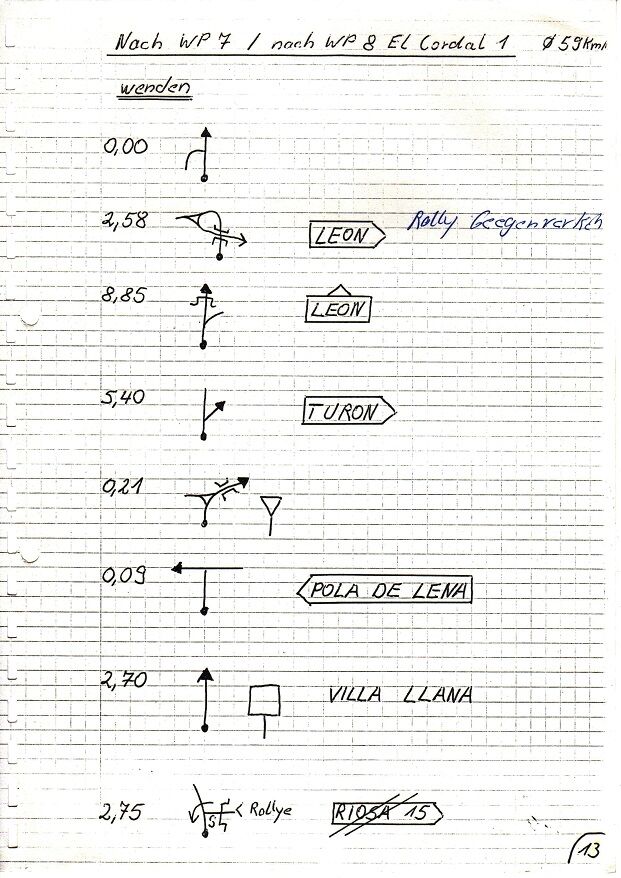 Nach WP 7 / nach WP 8 El Cordal 1 Ø 59 Km/
wenden
0,00
2,58 LEON Rally Geegenverkeh
8,85 LEON
5,40 TURON
0,21
0,09 POLA DE LENA
2,70 VILLA LLANA
2,75 Rollye RIOSA 15
13